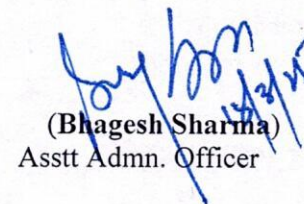 (Bhagesh Sharma)
Asstt Admn. Officer